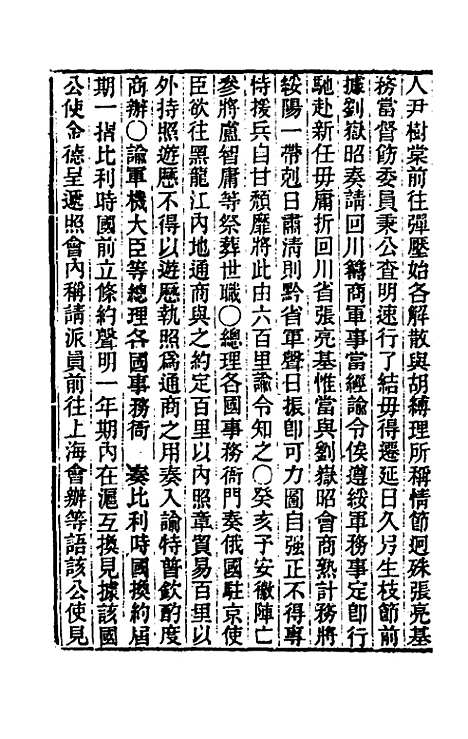 人尹樹棠前往彈壓始各解散與胡縛理所稱情節迥殊張亮基
務當督飭委員秉公查明速行了結毋得遷延日久另生枝節前
據劉嶽昭奏請回川籌商軍事當經諭令俟遵綏軍務事定卽行
馳赴新任毋庸折回川省張亮基惟當與劉嶽昭會商熟計務將
綏陽一帶剋日肅清則黔省軍聲日振卽可力圖自強正不得專
恃援兵自甘頹靡將此由六百里諭令知之〇癸亥予安徽陣亡
參將盧智庸等祭葬世職〇總理各國事務衙門奏俄國駐京使
臣欲往黑龍江內地通商與之約定百里以內照章貿易百里以
外持照遊歷不得以遊歷執照爲通商之用奏入諭特普欽酌度
商辦〇諭軍機大臣等總理各國事務衙 奏比利時國換約屆
期一摺比利時國前立條約聲明一年期內在滬互換見據該國
公使金德呈遞照會內稱請派員前往上海會辦等語該公使見